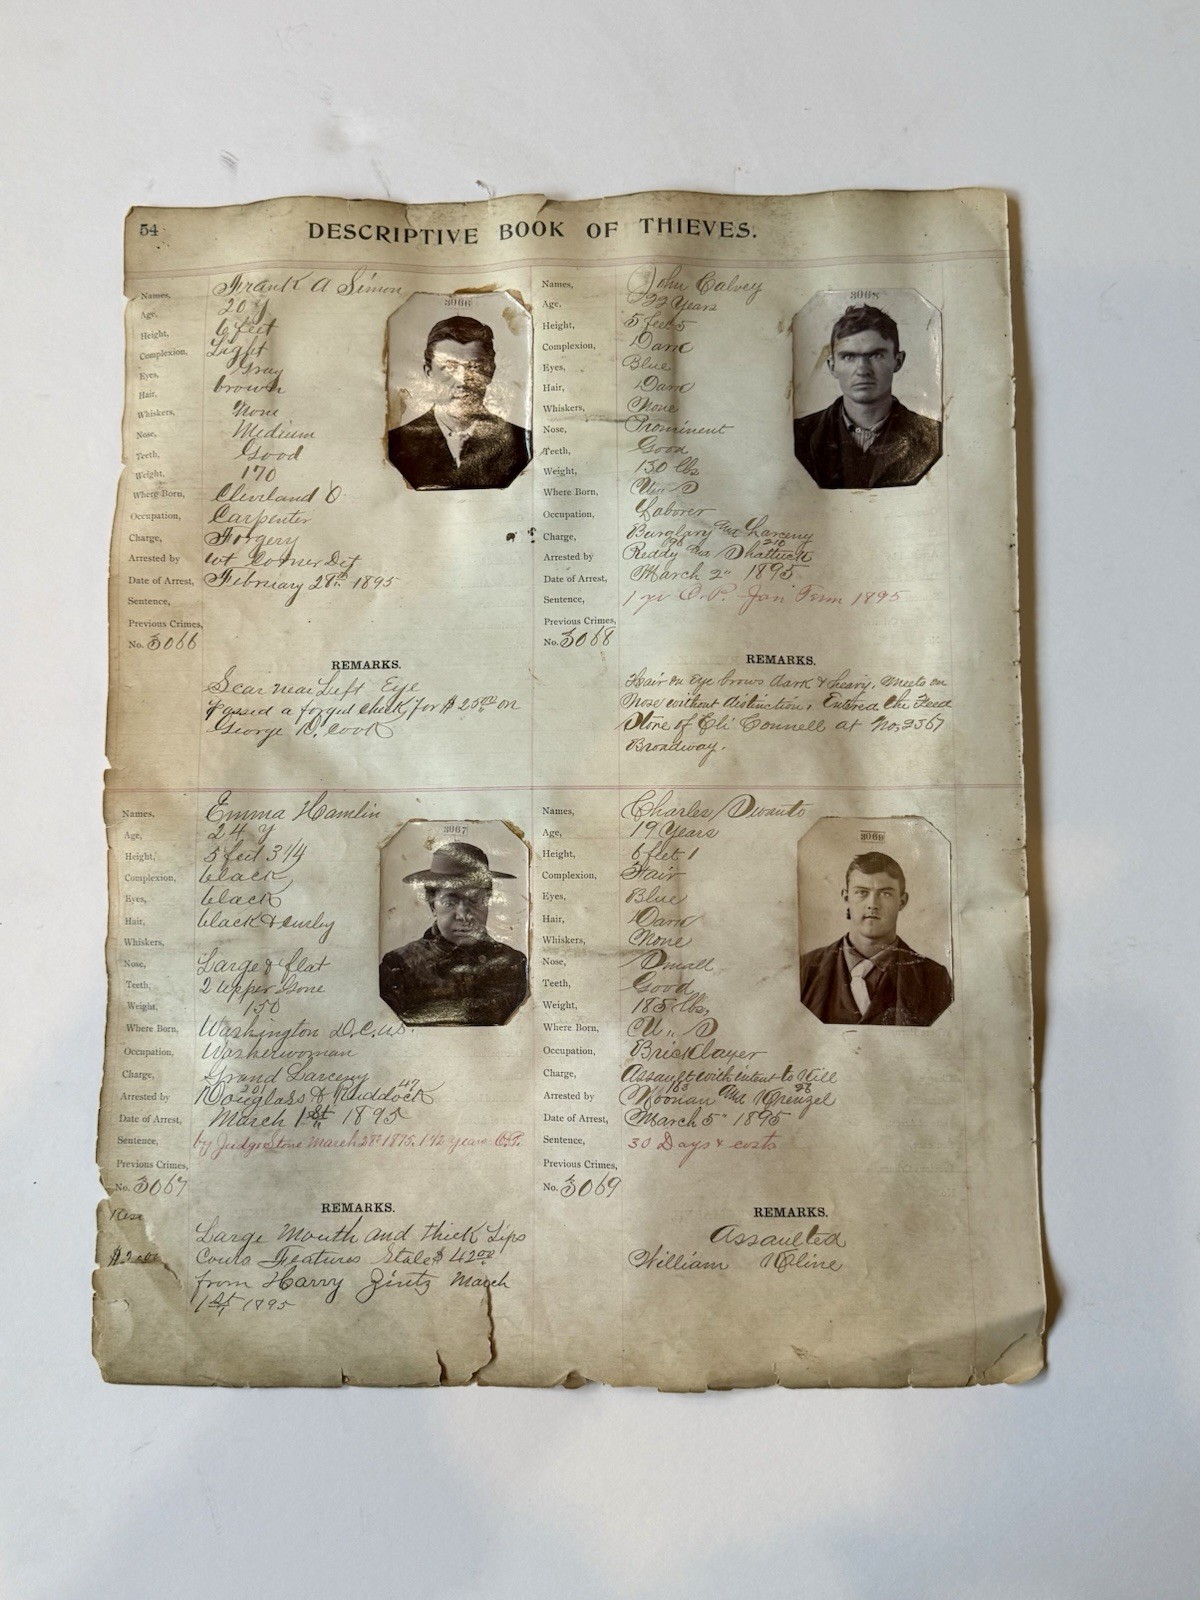 54
DESCRIPTIVE BOOK OF THIEVES.
Names, Frank A Simon
Age, 20 y
Height, 6 feet
Complexion, Light
Eyes, Gray
Hair, brown
Whiskers, None
Nose, Medium
Teeth, Good
Weight, 170
Where Born, Cleveland O
Occupation, Carpenter
Charge, Forgery
Arrested by
Date of Arrest, February 28th 1895
Sentence,
Previous Crimes,
No. 3066
3066
REMARKS.
Scar near Left Eye
passed a forged check for $ 25.00 on
George D. Cook
Names, John Calvey
Age, 22 Years
Height, 5 feet 5
Complexion, Dark
Eyes, Blue
Hair, Dark
Whiskers, None
Nose, Prominent
Teeth, Good
Weight, 150 lbs
Where Born, U. S
Occupation, Laborer
Charge, Burglary and Larceny
Arrested by Reddy and Shattuck
Date of Arrest, March 2" 1895
Sentence, 1 yr O.P. Jan Term 1895
Previous Crimes,
No. 3068
3068
REMARKS.
Hair on Eye brows dark & heavy, meets on
Nose without distinction, Entered the Feed
Store of Eli Connell at No. 2567
Broadway.
Names, Emma Hamlin
Age, 24 y
Height, 5 feet 3 1/4
Complexion, black
Eyes, black
Hair, black & curly
Whiskers,
Nose, Large & flat
Teeth, 2 upper Gone
Weight, 150
Where Born, Washington D.C. U.S.
Occupation, Washerwoman
Charge, Grand Larceny
Arrested by Douglass 201 & Ruddock 47
Date of Arrest, March 1st 1895
Sentence, by Judge Stone March 28th 1895. 1 1/2 years O.P.
Previous Crimes,
No. 3067
3067
REMARKS.
Large Mouth and thick Lips
Cours Features Stole $ 42.00
from Harry Zintz March
1st 1895
Names, Charles
Age, 19 Years
Height, 6 feet 1
Complexion, Fair
Eyes, Blue
Hair, Dark
Whiskers, None
Nose, Small
Teeth, Good
Weight, 185 lbs,
Where Born, U. S
Occupation, Bricklayer
Charge, Assault with intent to Kill
Arrested by Noonan and Krenzel
Date of Arrest, March 5" 1895
Sentence, 30 Days & costs
Previous Crimes,
No. 3069
3069
REMARKS.
Assaulted
William Kline